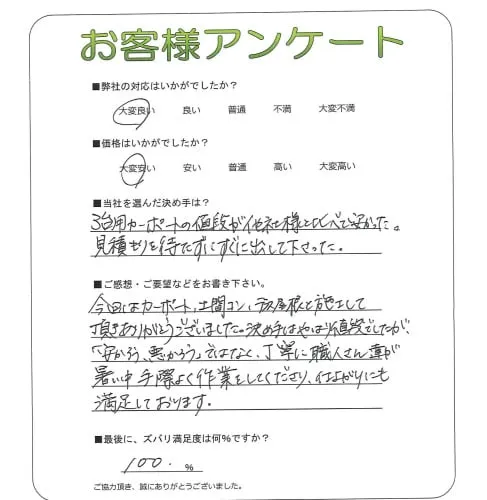 お客様アンケート
■弊社の対応はいかがでしたか？
大変良い 良い 普通 不満 大変不満
■価格はいかがでしたか？
大変安い 安い 普通 高い 大変高い
■当社を選んだ決め手は？
3台用カーポートの値段が他社様と比べて安かった。
見積もりを待たずにすぐに出して下さった。
■ご感想・ご要望などをお書き下さい。
今回はカーポート、土間コン、屋根と施工して
頂きありがとうございました。決め手はやはり値段でしたが、
「安かろう、悪かろう」ではなく、丁寧に職人さん達が
暑い中手際よく作業をしてくださり、仕上がりにも
満足しております。
■最後に、ズバリ満足度は何％ですか？
100. ％
ご協力頂き、誠にありがとうございました。